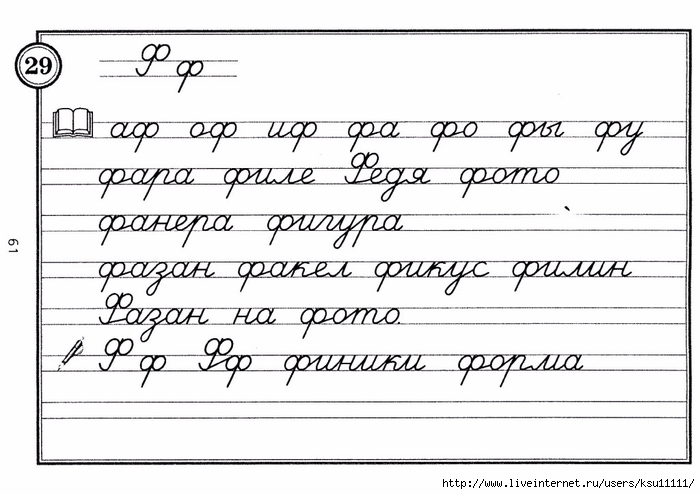 29
Ф ф
аф оф иф фа фо фы фу
фара филе Федя фото
фанера фигура
фазан факел фикус филин
Фазан на фото.
Ф ф Фф финики форма
61
http://www.liveinternet.ru/users/ksu11111/